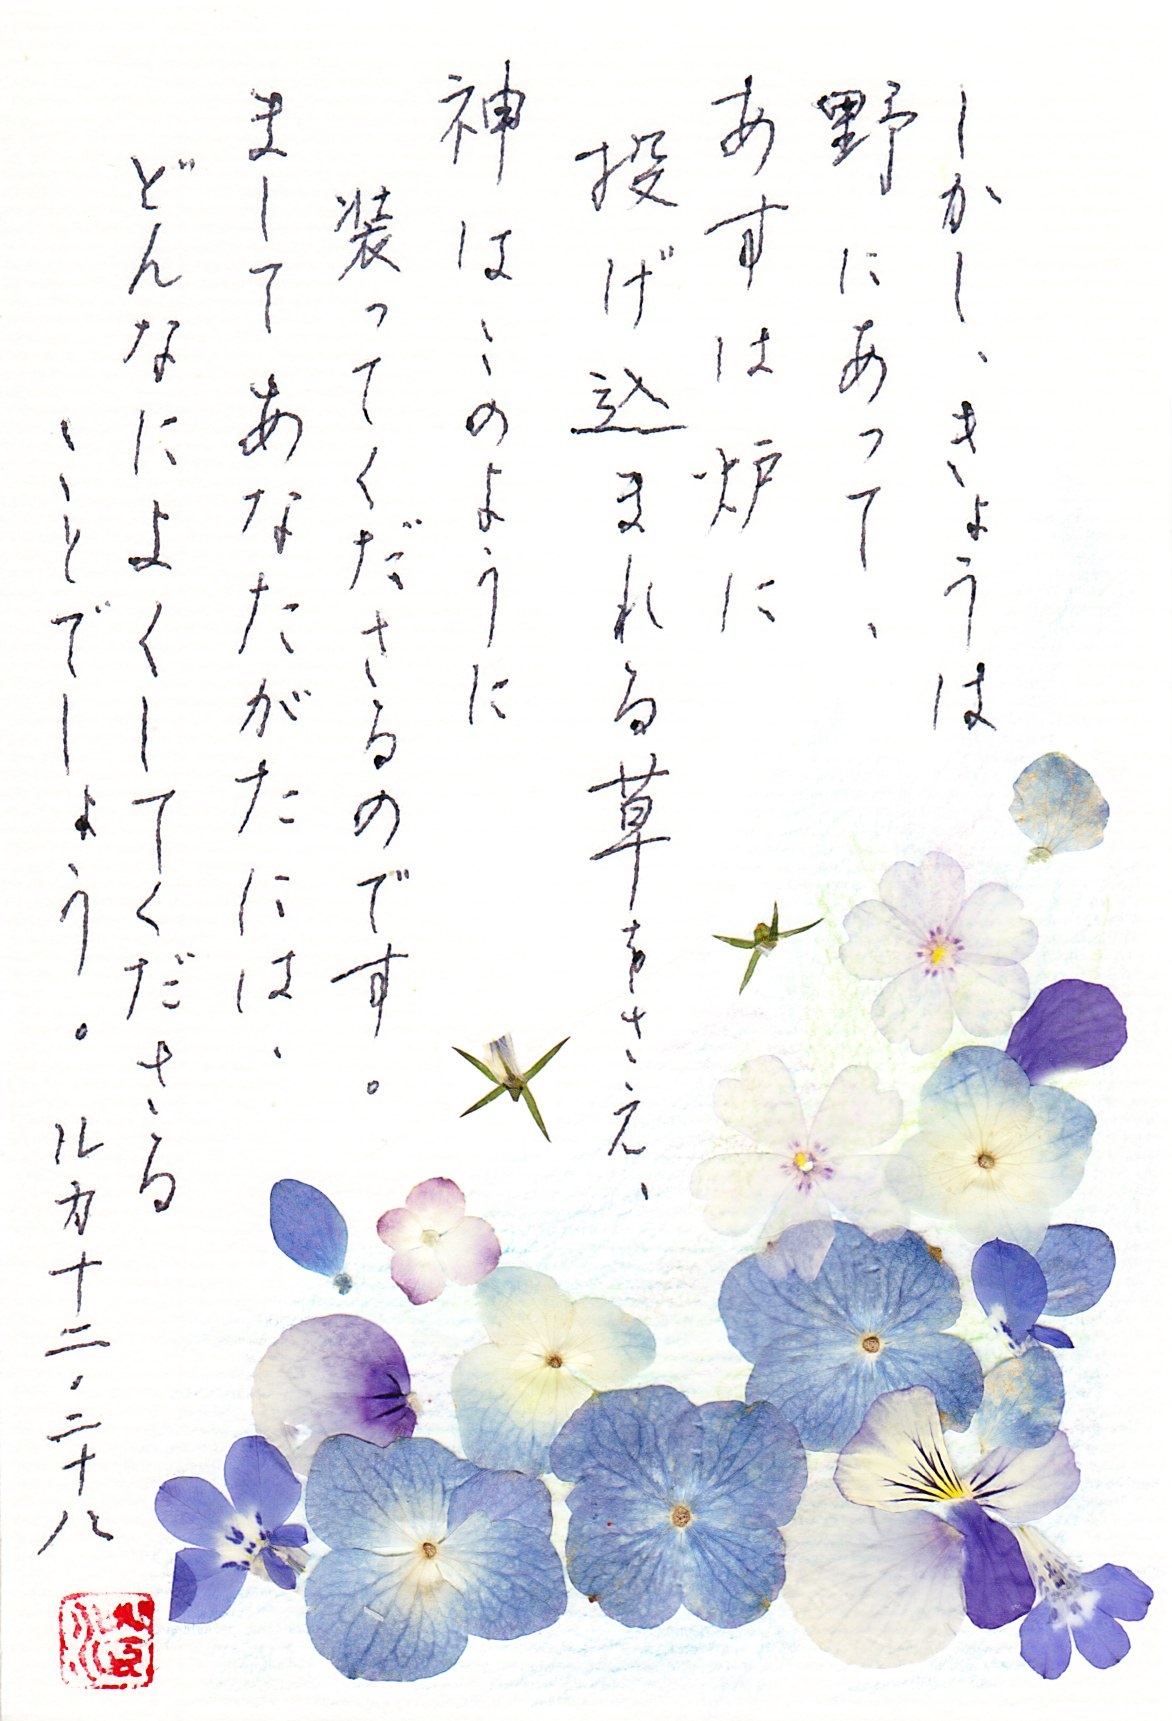 しかし、きょうは
野にあって、
あすは炉に
投げ込まれる草をさえ、
神はこのように
装ってくださるのです。
ましてあなたがたには、
どんなによくしてくださる
ことでしょう。 ルカ十二・二十八